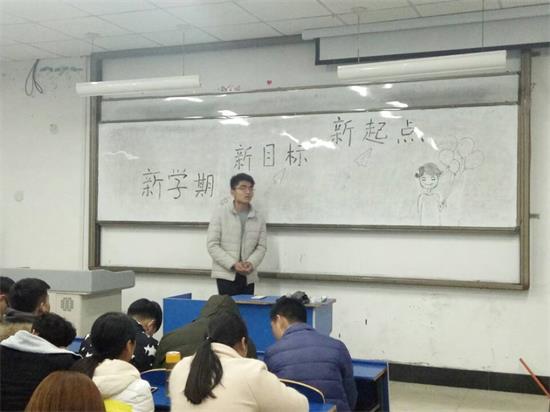 新学期
新目标
新起点